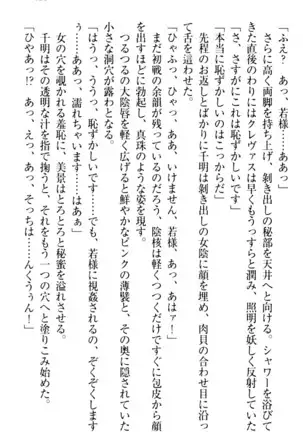 「ふえ？　あっ、若様……ああっ」
さらに高く両脚を持ち上げ、剥き出しの秘部を天井へと向ける。シャワーを浴びて
きた直後のわりにクレヴァスは早くもうっすらと潤み、照明を妖しく反射していた。
「さ、さすがにこれは恥ずかしいです」
「本当に恥ずかしいのはこっからだ」
先程のお返しとばかりに千明は剥き出しの女陰に顔を埋め、肉貝の合わせ目に沿っ
て舌を這わせた。
「ひゃふっ、ひゃあっ、あっ、いけません、若様、あっ、あはァ！」
まだ初戦の余韻が残っているのだろう、陰核は軽くつつくだけですぐに包皮から顔
を出すほどに勃起し、真珠のような姿を現す。
つるつるの大陰唇を軽く広げると鮮やかなピンクの薄襞と、その奥に隠されていた
小さな洞穴が露わとなる。
「はうっ、ううっ、恥ずかしいです……でも、若様に視姦されるの、ぞくぞくします
……ああっ、濡れちゃいます……はぁぁ」
女の穴を覗かれる羞恥に、美景はとろとろと秘蜜を溢れさせる。
千明はその透明な汁を指で掬うと、それをもう一つの穴へと塗りこみ始めた。
「ひやあっ!?　あっ、えっ、あっ、そっちは……んくうぅん！」